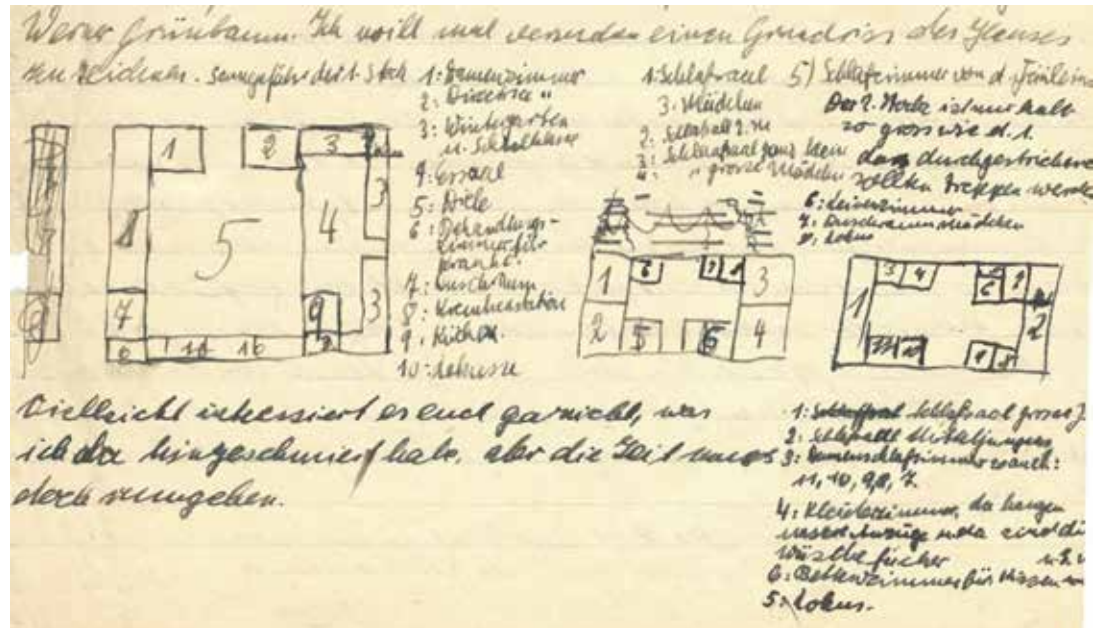 Werner Grünbaum. Ich will mal versuchen einen Grundriss des Hauses
zu zeichnen. so ungefähr der 1. Stock
1: Damenzimmer
2: Direktor "
3: Wintergarten
u. Schulklasse
4: Essaal
5: Diele
6: Behandlungs-
zimmer für
Kranke.
7: Duschraum
8: Krankenstation
9. Küche.
10: Lokusse
1 2 3 3 8 5 4 7 9 3 10 10
1: Schlafsaal
3. Mädchen
2. Schlafsaal 2. M
3: Schlafsaal ganz klein
4: " grosse Mädchen
5) Schlafzimmer von d. Fräuleins
Der 2. Stock ist nur halb
so gross wie d. 1.
das durchgestrichene
sollten Treppen werden
6: Leiterzimmer
7. Duschraum Mädchen
8. Lokus
1 6 7 8 3
2 5 6 4
3 4 6
1 2
11 10 8
Vielleicht interessiert es euch gar nicht, was
ich da hingeschmiert habe, aber die Zeit muss
doch rumgehen.
1: Schlafsaal grosse J
2: Schlafsaal Mitteljungens
3: Damenschlafzimmer auch:
11, 10, 9, 8, 7.
4: Kleiderzimmer, da hängen
unsere Anzüge u. da sind di
Wäschefächer
6: Bettenzimmer für Kissen
5: Lokus.